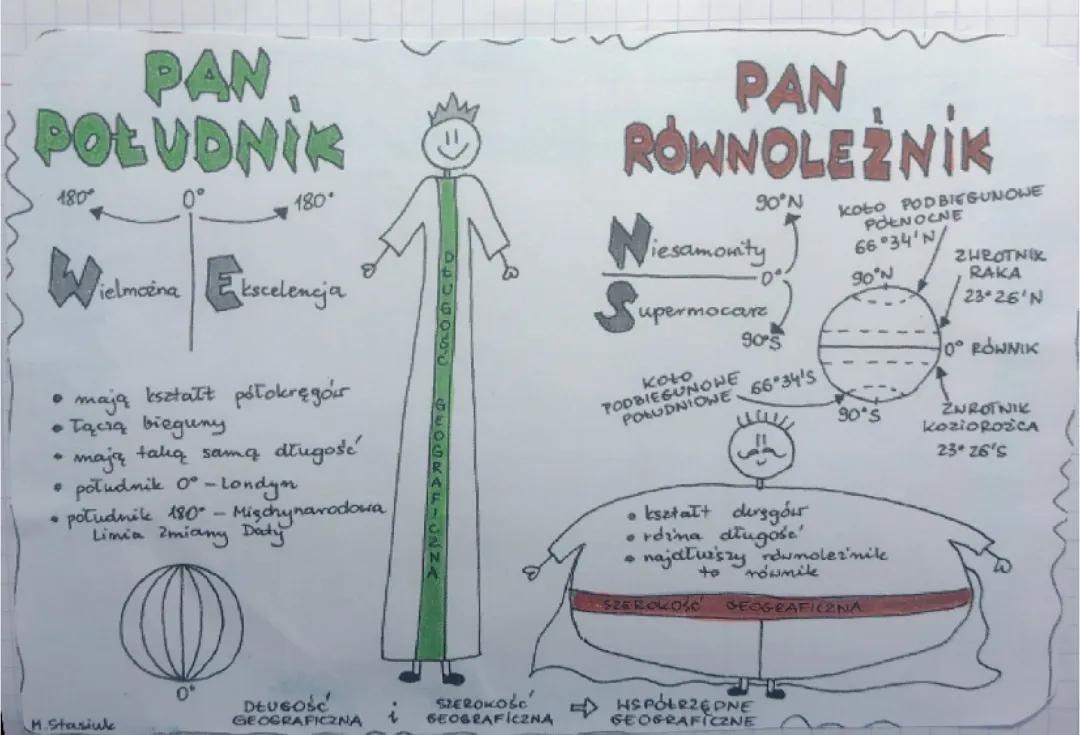 PAN
POŁUDNIK
180° 0° 180°
Wielmożna Ekscelencja
• mają kształt półokręgów
• łączą bieguny
• mają taką samą długość
• południk 0° - Londyn
• południk 180° - Międzynarodowa
Linia Zmiany Daty
0°
DŁUGOŚĆ GEOGRAFICZNA
PAN
RÓWNOLEŻNIK
90°N
Niesamowity
0°
Supermocarz
90°S
KOŁO PODBIEGUNOWE
PÓŁNOCNE
66°34'N
ZWROTNIK
RAKA
23°26'N
90°N
0° RÓWNIK
KOŁO
PODBIEGUNOWE
POŁUDNIOWE
66°34'S
90°S
ZWROTNIK
KOZIOROŻCA
23°26'S
• kształt okręgów
• różna długość
• najdłuższy równoleżnik
to równik
SZEROKOŚĆ GEOGRAFICZNA
DŁUGOŚĆ
GEOGRAFICZNA
i
SZEROKOŚĆ
GEOGRAFICZNA
⇨
WSPÓŁRZĘDNE
GEOGRAFICZNE
M. Stasiuk